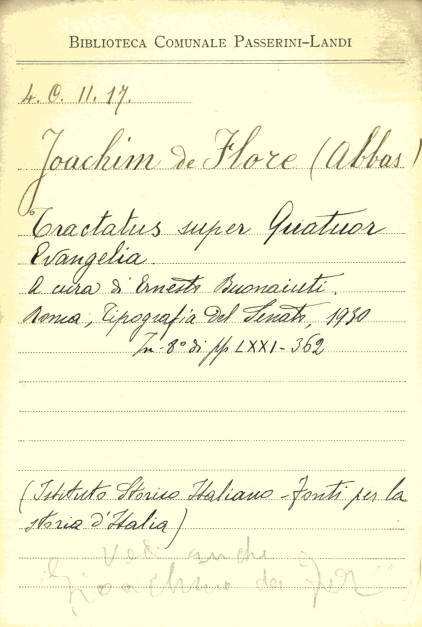 BIBLIOTECA COMUNALE PASSERINI-LANDI
4. C. II. 17.
Joachim de Flore (Abbas)
Tractatus super Quatuor
Evangelia.
A cura di Ernesto Buonaiuti.
Roma, Tipografia del Senato, 1930
In-8° di pp LXXI-362
(Istituto Storico Italiano - Fonti per la
storia d'Italia)
Vedi anche
Gioachino da